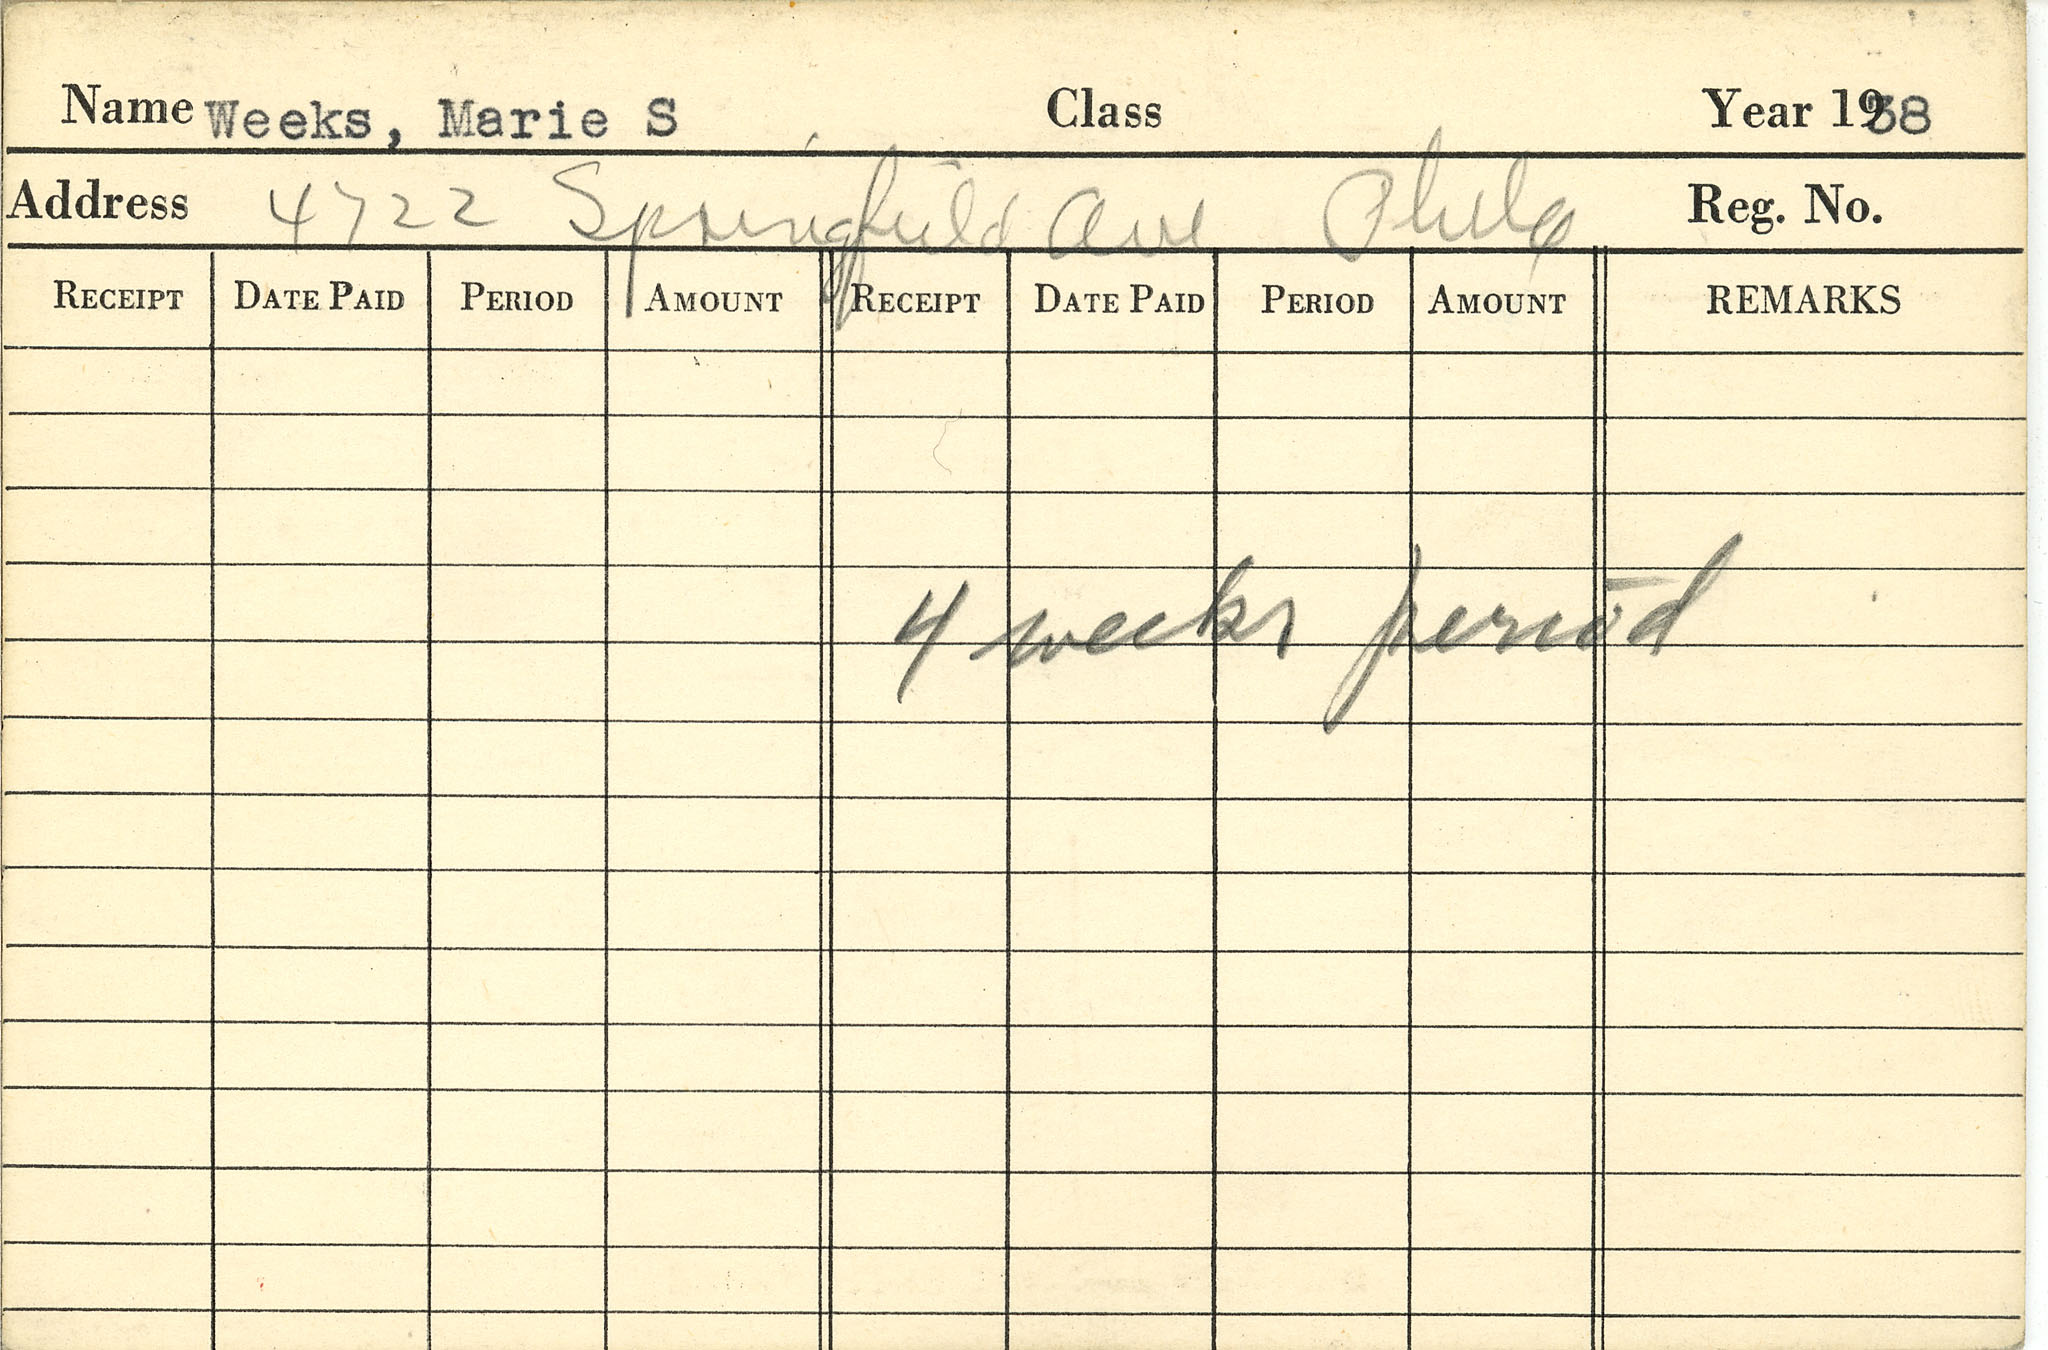 Name Weeks, Marie S Class Year 1938
Address 4722 Springfield Ave Phila Reg. No.
RECEIPT DATE PAID PERIOD AMOUNT RECEIPT DATE PAID PERIOD AMOUNT REMARKS
4 weeks period